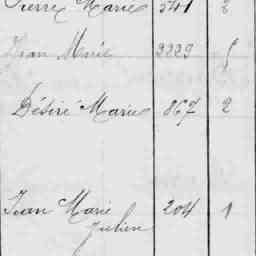 Pierre Marie 541 2
Jean Marie 2229
Désiré Marie 867 2
Jean Marie 204 1
Julien